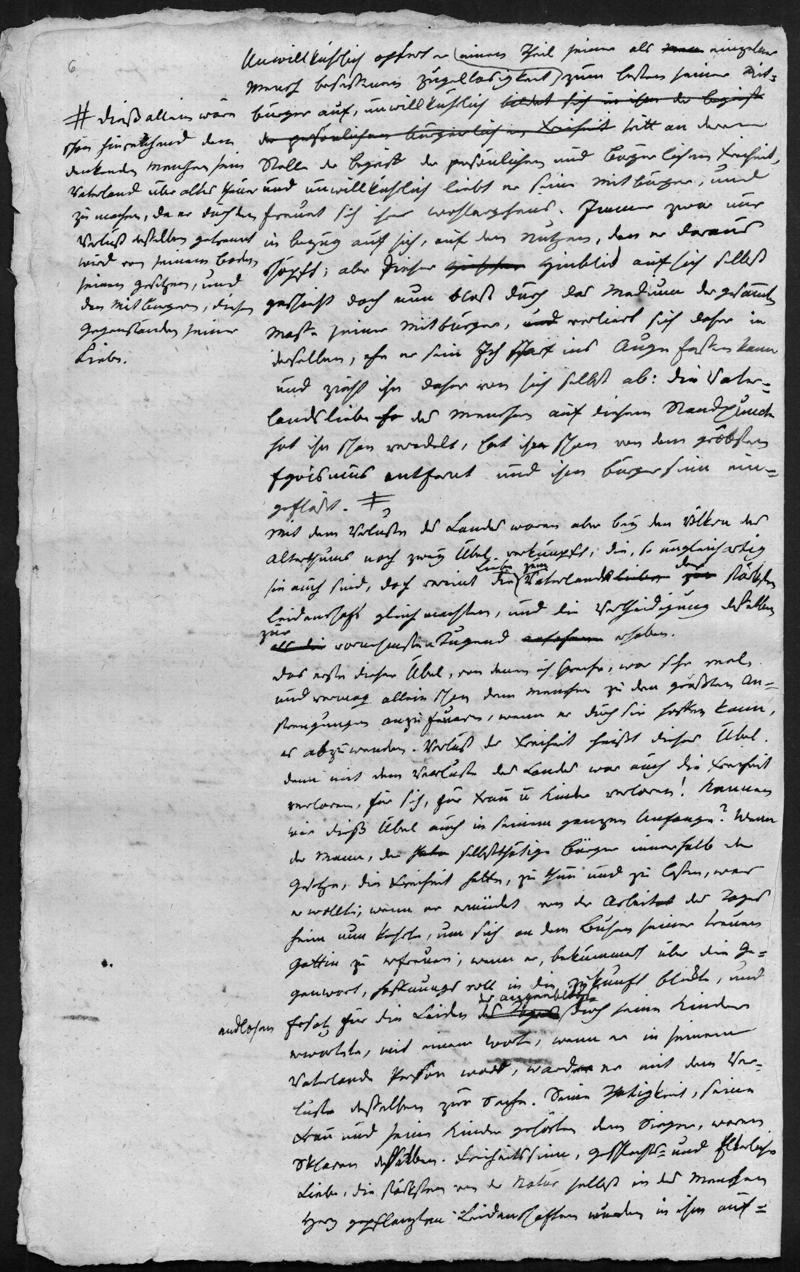 6
Unwillkührlich opfert er (einen Theil seiner als einzelner
Mensch besessenen Zügellosigkeit) zum besten seiner Mit-
bürger auf, unwillkührlich bildet sich in ihm der Begriff
der persönlichen bürgerlichen Freiheit tritt an deren
Stelle der Begriff der persönlichen und bürgerlichen Freiheit,
und unwillkührlich liebt er seine Mitbürger, und
freuet sich ihres Wohlergehens. Immer zwar nur
in bezug auf sich, auf den Nutzen, den er daraus
schöpft; aber dieser Hinblick auf sich selbst
geschieht doch nun bloß durch das Medium der gesammten
Masse seiner Mitbürger, und verliert sich daher in
derselben, ehe er sein Ich scharf ins Auge fassen kann
und zieht ihn daher von sich selbst ab: die Vater-
landsliebe des Menschen auf diesem Standpuncte
hat ihn schon veredelt, hat ihn schon von dem gröbsten
Egoismus entfernt und ihm Bürgersinn ein-
geflößt. #
# dieß allein wäre
schon hinreichend dem
denkenden Menschen sein
Vaterland über alles theuer
zu machen, da er durch den
Verlust desselben getrennt
wird von seinem Boden
seinen Gesetzen, und
den Mitbürgern, diesen
Gegenständen seiner
Liebe.
Mit dem Verluste des Landes waren aber bey den Völkern des
Alterthums noch zwey Übel verknüpft, die, so ungleichartig
sie auch sind, doch vereint die Liebe zum Vaterlande der stärksten
Leidenschaft gleich machten, und die Vertheidigung desselben
zur vornehmsten Tugend erhoben.
Das erste dieser Übel, von denen ich spreche, war sehr reel
und vermag allein schon den Menschen zu den größten An-
strengungen anzufeuern, wenn er durch sie hoffen kann,
es abzuwenden. Verlust der Freiheit heißt dieses Übel.
denn mit dem Verluste des Landes war auch die Freiheit
verloren, für sich, für Frau u Kinder verloren! Kennen
wir dieß Übel auch in seinem ganzen Umfange? Wenn
der Mann, der selbstthätige Bürger innerhalb der
Gesetze, die Freiheit hatte, zu thun und zu lassen, was
er wollte; wenn er ermüdet von der Arbeit des Tages
heim nun kehrte, um sich an dem Busen seiner treuen
Gattin zu erfreuen; wenn er, bekümmert über die Ge-
genwart, hoffnungsvoll in die Zukunft blickte, und
endlosen Ersatz für die Leiden des Augenblicks durch seine Kinder
erwartete, mit einem Worte, wenn er in seinem
Vaterlande Person war, wurde er mit dem Ver-
luste desselben zur Sache. Seine Thätigkeit, seine
Frau und seine Kinder gehörten dem Sieger, waren
Sklaven desselben. Freiheitssinn, Geschlechts- und Elterliche
Liebe, die stärksten von der Natur selbst in des Menschen
Herz gepflanzten Leidenschaften wurden in ihm auf-